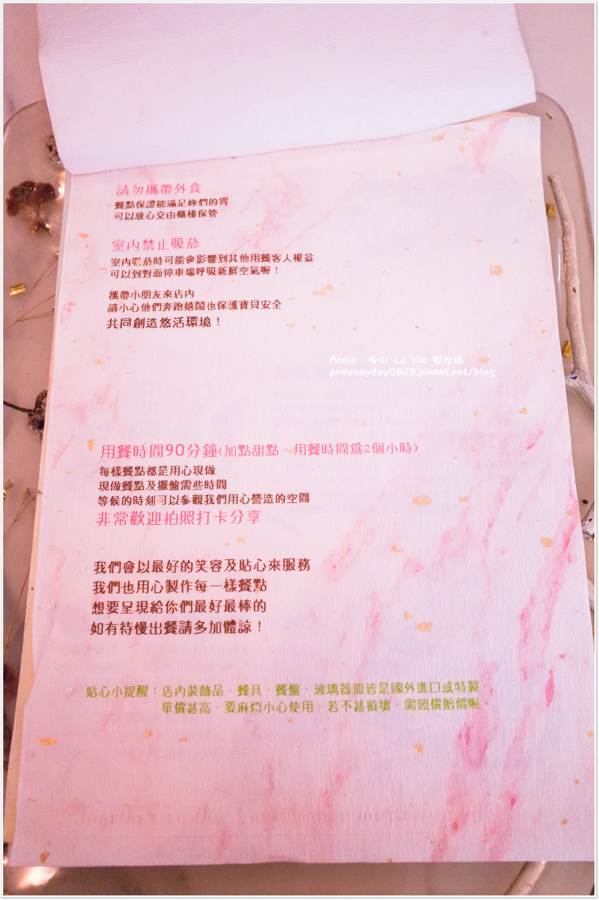 請勿攜帶外食
餐點保證能滿足妳們的胃
可以放心交由櫃檯保管
室內禁止吸菸
室內吸菸時可能會影響到其他用餐客人權益
可以到對面停車場呼吸新鮮空氣喔！
攜帶小朋友來店內
請小心他們奔跑嬉鬧也保護寶貝安全
共同創造悠活環境！
Annie La Vie
pinkmayday0928.pixnet.net/blog
用餐時間90分鐘(加點甜點、用餐時間為2個小時)
每樣餐點都是用心現做
現做餐點及擺盤需些時間
等候的時刻可以參觀我們用心營造的空間
非常歡迎拍照打卡分享
我們會以最好的笑容及貼心來服務
我們也用心製作每一樣餐點
想要呈現給你們最好最棒的
如有待慢出餐請多加體諒！
貼心小提醒：店內裝飾品、餐具、餐盤、玻璃器皿皆是國外進口或特製
單價甚高，要麻煩小心使用，若不甚損壞，需照價賠償喔